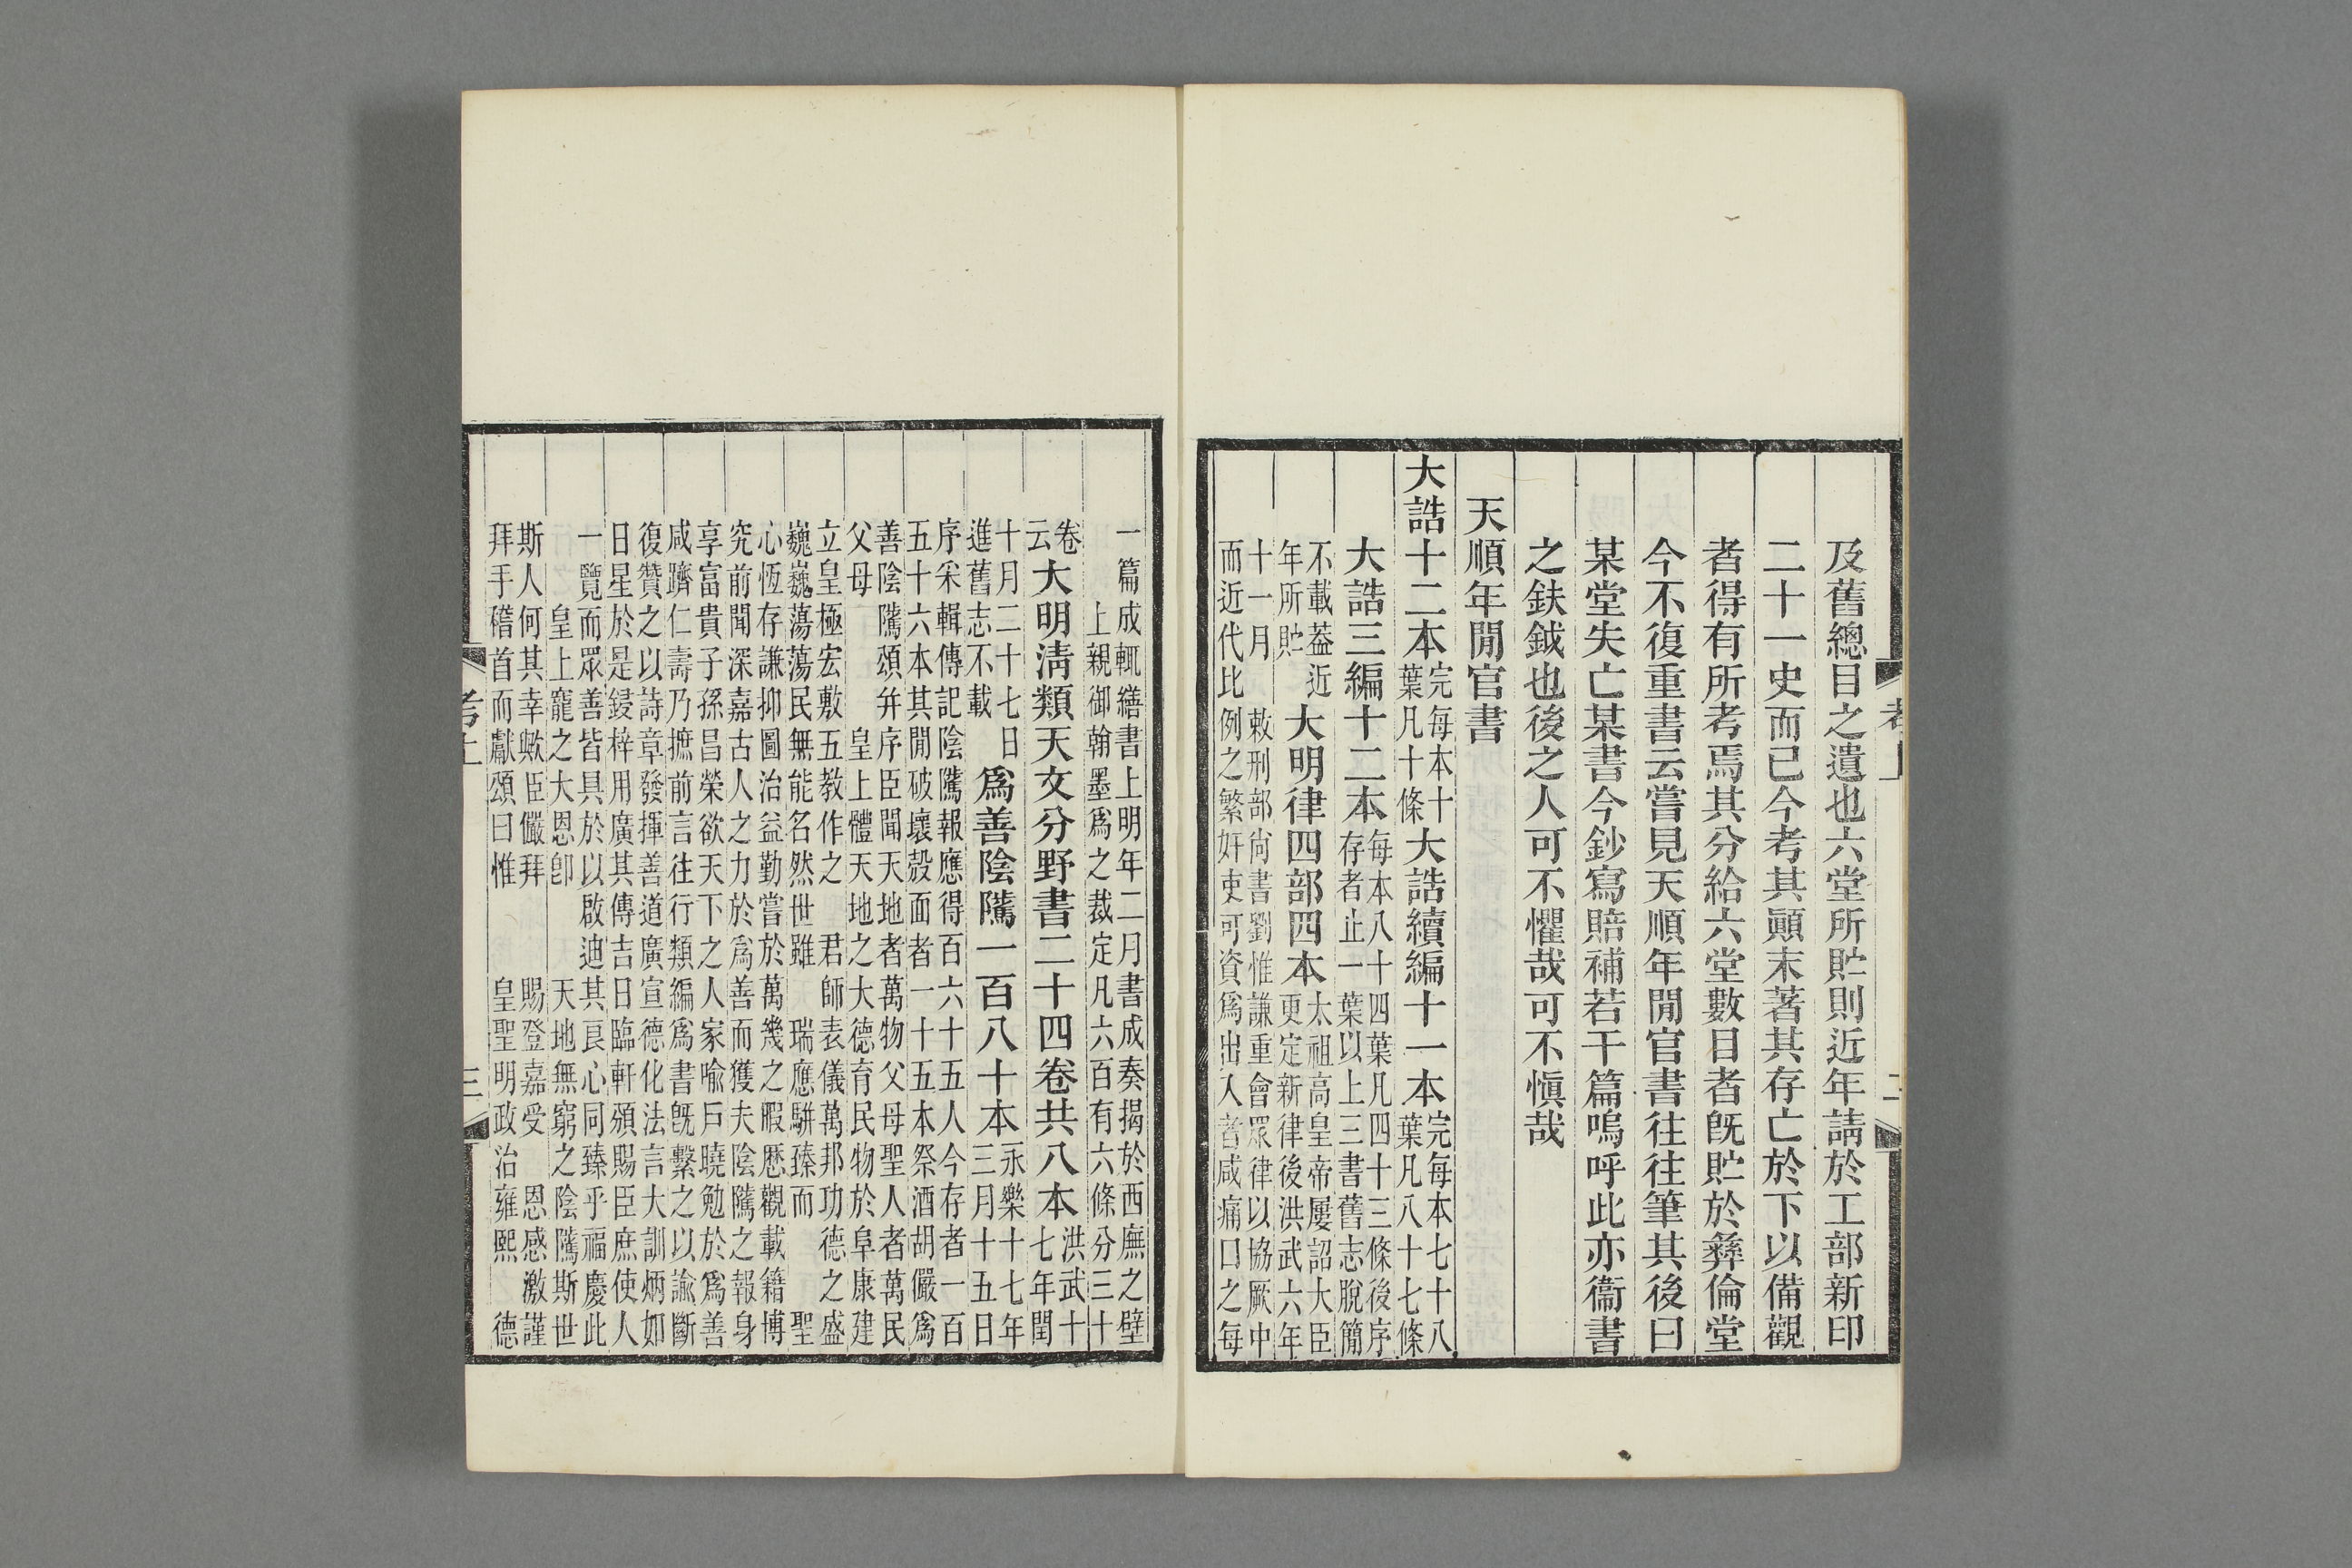 及舊總目之遺也六堂所貯則近年請於工部新印
二十一史而已今考其顚末著其存亡於下以備觀
者得有所考焉其分給六堂數目者旣貯於彜倫堂
今不復重書云嘗見天順年閒官書往往筆其後曰
某堂失亡某書今鈔寫賠補若干篇嗚呼此亦衞書
之鈇鉞也後之人可不懼哉可不愼哉
天順年閒官書
大誥十二本完每本十葉凡十條大誥續編十一本完每本七十八葉凡八十七條
大誥三編十二本每本八十四葉凡四十三條後序存者止一葉以上三書舊志脫簡
不載葢近年所貯大明律四部四本太祖高皇帝屢詔大臣更定新律後洪武六年
十一月敕刑部尙書劉惟謙重會眾律以協厥中
而近代比例之繁奸吏可資爲出入者咸痛口之每
一篇成輒繕書上明年二月書成奏揭於西廡之壁
上親御翰墨爲之裁定凡六百有六條分三十
卷云大明淸類天文分野書二十四卷共八本洪武十七年閏
十月二十七日進舊志不載爲善陰隲一百八十本永樂十七年三月十五日
序采輯傳記陰隲報應得百六十五人今存者一百
五十六本其閒破壞殼面者一十五本祭酒胡儼爲
善陰隲頌幷序臣聞天地者萬物父母聖人者萬民
父母皇上體天地之大德育民物於阜康建
立皇極宏敷五教作之君師表儀萬邦功德之盛
巍巍蕩蕩民無能名然世雖瑞應駢臻而聖
心恆存謙抑圖治益勤嘗於萬幾之暇歷觀載籍博
究前聞深嘉古人之力於爲善而獲夫陰隲之報身
享富貴子孫昌榮欲天下之人家喻戶曉勉於爲善
咸躋仁壽乃摭前言往行類編爲書旣繫之以論斷
復贊之以詩章發揮善道廣宣德化法言大訓炳如
日星於是鋟梓用廣其傳吉日臨軒頒賜臣庶使人
一覽而眾善皆具於以啟迪其良心同臻乎福慶此
皇上寵之大恩卽天地無窮之陰隲斯世
斯人何其幸歟臣儼拜賜登嘉受恩感激謹
拜手稽首而獻頌曰惟皇聖明政治雍熙德
考上
三